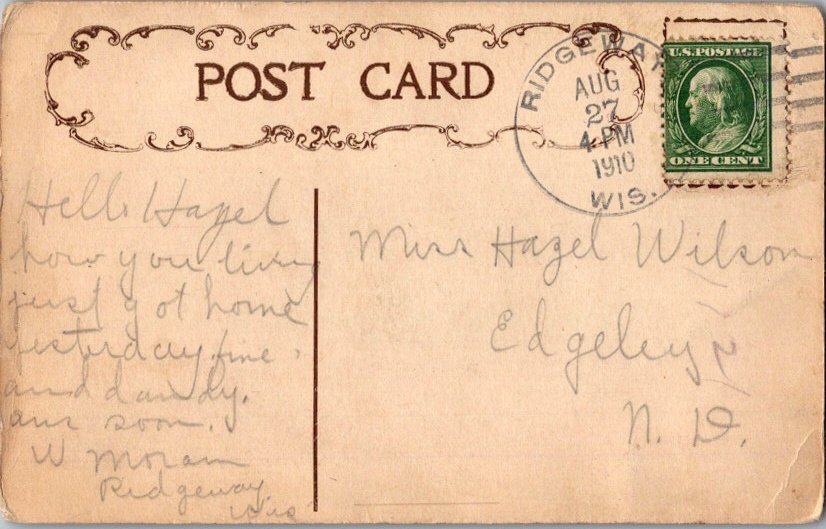 POST CARD
RIDGEWAY
AUG
27
4-PM
1910
WIS.
U.S. POSTAGE
ONE CENT
Hello Hazel
how you living
just got home
yesterday fine
and dandy.
ans soon.
W Moran
Ridgeway
Wis
Miss Hazel Wilson
Edgeley
N. D.